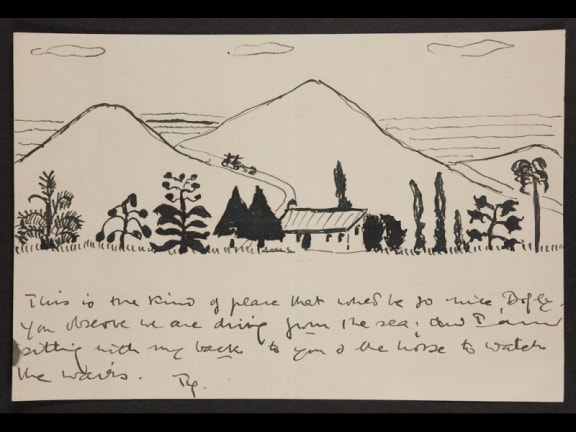 This is the kind of place that would be so nice,
you observe we are driving from the sea; and I am
sitting with my back to you & the horse to watch
the waves.